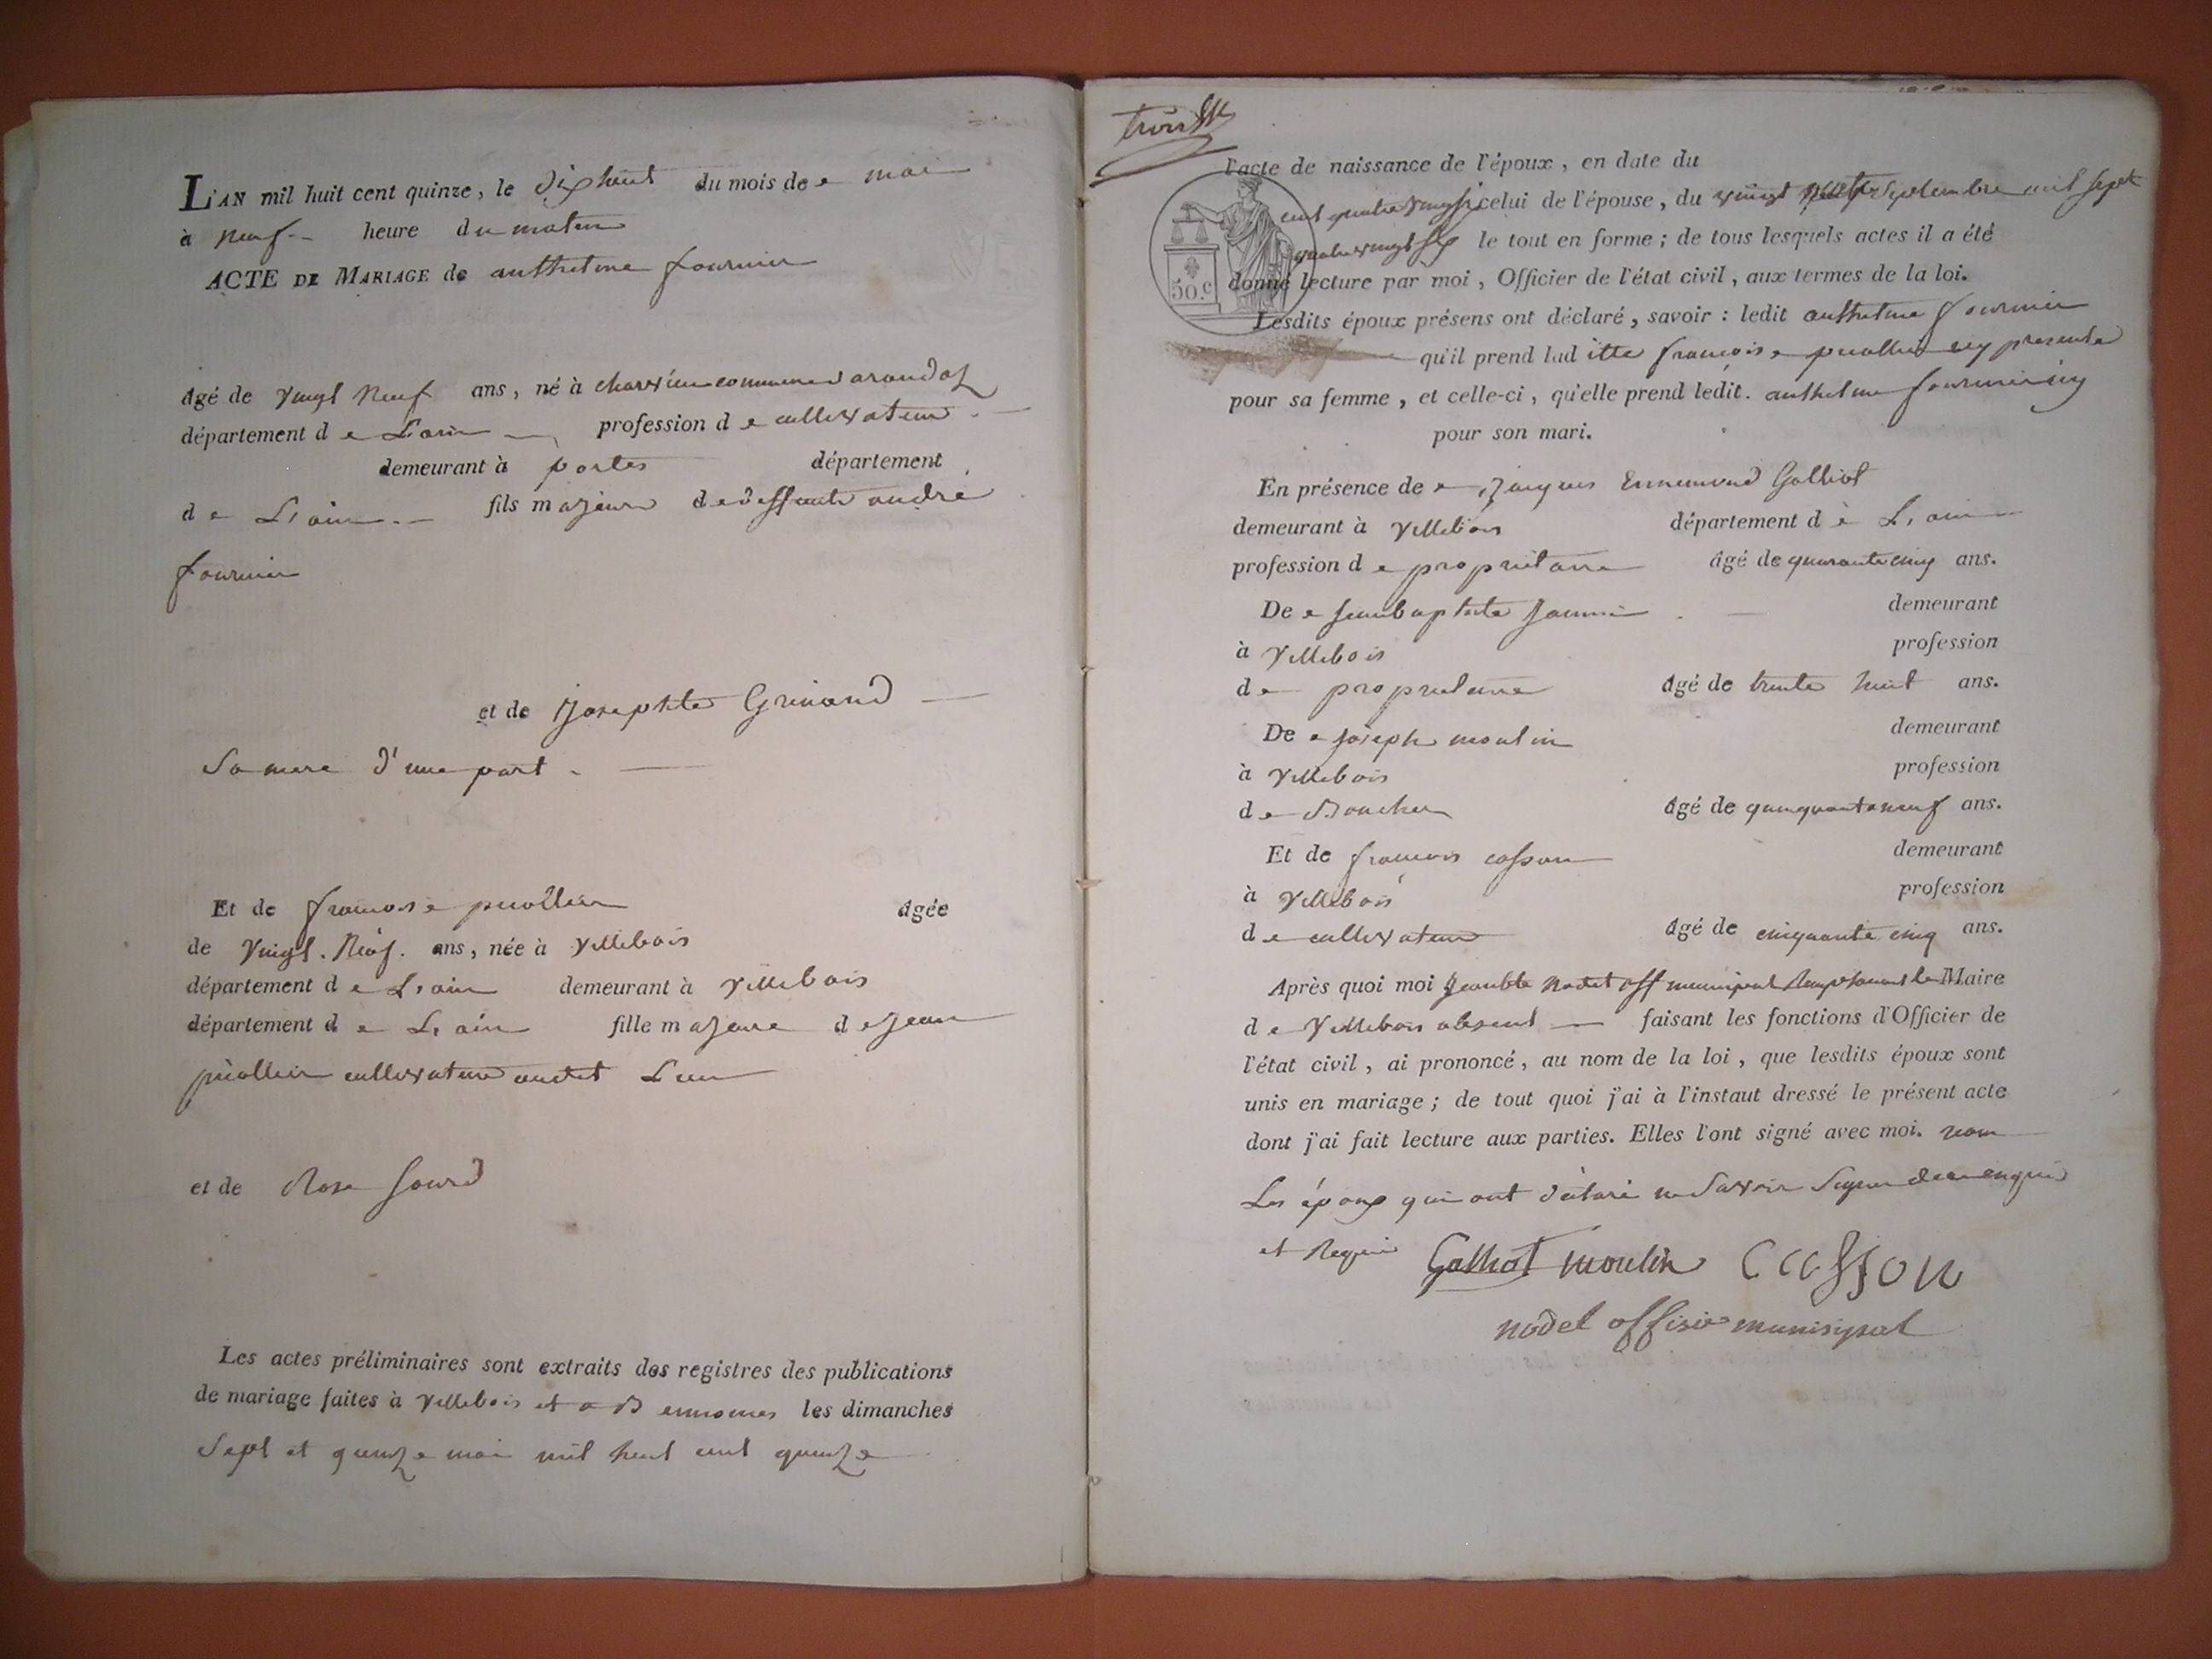 L'AN mil huit cent quinze, le dix huit du mois de mai
à neuf heure du matin
ACTE DE MARIAGE de anthelme fournier
âgé de vingt neuf ans, né à commune arandaz
département de L'ain profession de cultivateur
demeurant à portes département
de L'ain fils majeur de deffunt andré
fournier
et de Josephte Grinand
sa mere d'une part
Et de francoise puollier agée
de vingt. Neuf. ans, née à villebois
département de L'ain demeurant à villebois
département de L'ain fille majeure de jean
puollier cultivateur audit Lieu
et de Rose Sourd
Les actes préliminaires sont extraits des registres des publications
de mariage faites à villebois et a les dimanches
Sept et quinze mai mil huit cent quinze
trois
l'acte de naissance de l'époux, en date du
cent quatre vingt six celui de l'épouse, du vingt septembre mil sept
quatre vingt six le tout en forme ; de tous lesquels actes il a été
donné lecture par moi, Officier de l'état civil, aux termes de la loi.
50.c
Lesdits époux présens ont déclaré, savoir : ledit anthelme fournier
qu'il prend lad itte francoise puollier icy presente
pour sa femme, et celle-ci, qu'elle prend ledit. anthelme fournier icy
pour son mari.
En présence de Jacques Ennemond Galliot
demeurant à villebois département de L'ain
profession de proprietaire âgé de quarante cinq ans.
De Jean baptiste Jannin demeurant
à villebois profession
de proprietaire âgé de trente huit ans.
De joseph moulin demeurant
à villebois profession
de Boucher âgé de quinquante neuf ans.
Et de francois casson demeurant
à villebois profession
de cultivateur âgé de cinquante cinq ans.
Après quoi moi nodet off municipal remplacant le Maire
de villebois absent faisant les fonctions d'Officier de
l'état civil, ai prononcé, au nom de la loi, que lesdits époux sont
unis en mariage ; de tout quoi j'ai à l'instaut dressé le présent acte
dont j'ai fait lecture aux parties. Elles l'ont signé avec moi. non
Les époux qui ont déclaré ne Savoir Signer de ce enquis
et Requis Galliot moulin Casson
nodet offisier munisipal